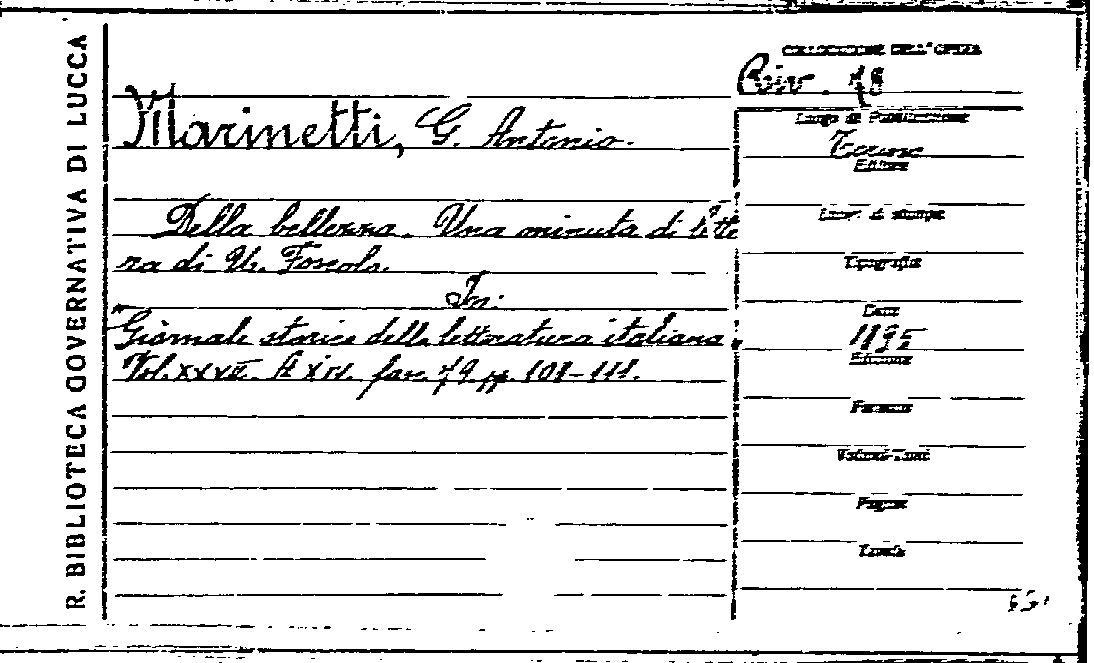 R. BIBLIOTECA GOVERNATIVA DI LUCCA
COLLOCAZIONE DELL'OPERA
Riv. 78
Marinetti, G. Antonio.
Luogo di Pubblicazione
Torino
Editore
Della bellezza. Una minuta di lette
ra di U. Foscolo.
Luogo di stampa
Tipografia
In:
Giornale storico della letteratura italiana.
Data
1895
Edizione
A XIV. fasc. 79 pp. 108-111.
Formato
Volumi-Tomi
Pagine
Tavole